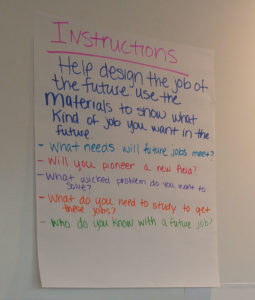 Instructions
Help design the job of
the future use the
materials to show what
kind of job you want in the
future.
- What needs will future jobs meet?
- Will you pioneer a new field?
- What wicked problem do you want to
solve?
- What do you need to study to get
these jobs?
- Who do you know with a future job?